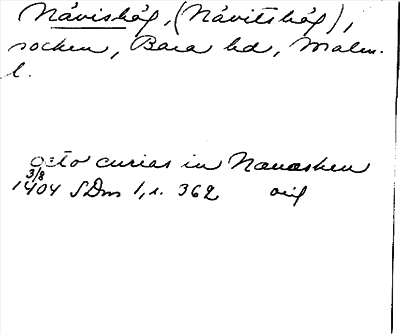 Návishög, (Návitshög),
socken, Bara hd, Malm.
l.
octo curias in Nauasheu
3/8
1404 SDns 1, s. 362 orig